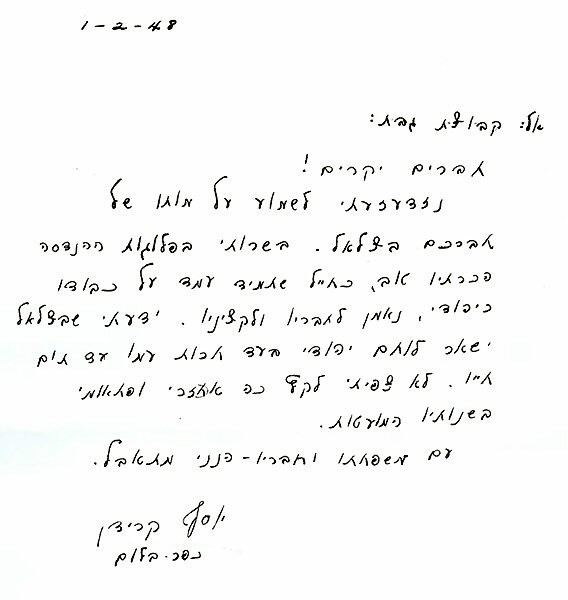 1-2-48
אל: קבוצת גבת:
חברים יקרים!
נזדעזעתי לשמוע על מותו של
חברכם בצלאל. בשרותי בפלוגות ההנדסה
הכרתיו טוב, כחייל שתמיד עמד על כבודו
כיהודי, נאמן לחבריו ולקציניו. ידעתי שבצלאל
ישאר לוחם יהודי בעד זכות עמו עד תום
חייו. לא צפיתי לקץ כה אכזרי ופתאומי
בשנותיו המועטות.
עם משפחתו וחבריו - הנני מתאבל.
יוסף קרידן
כפר-בלום